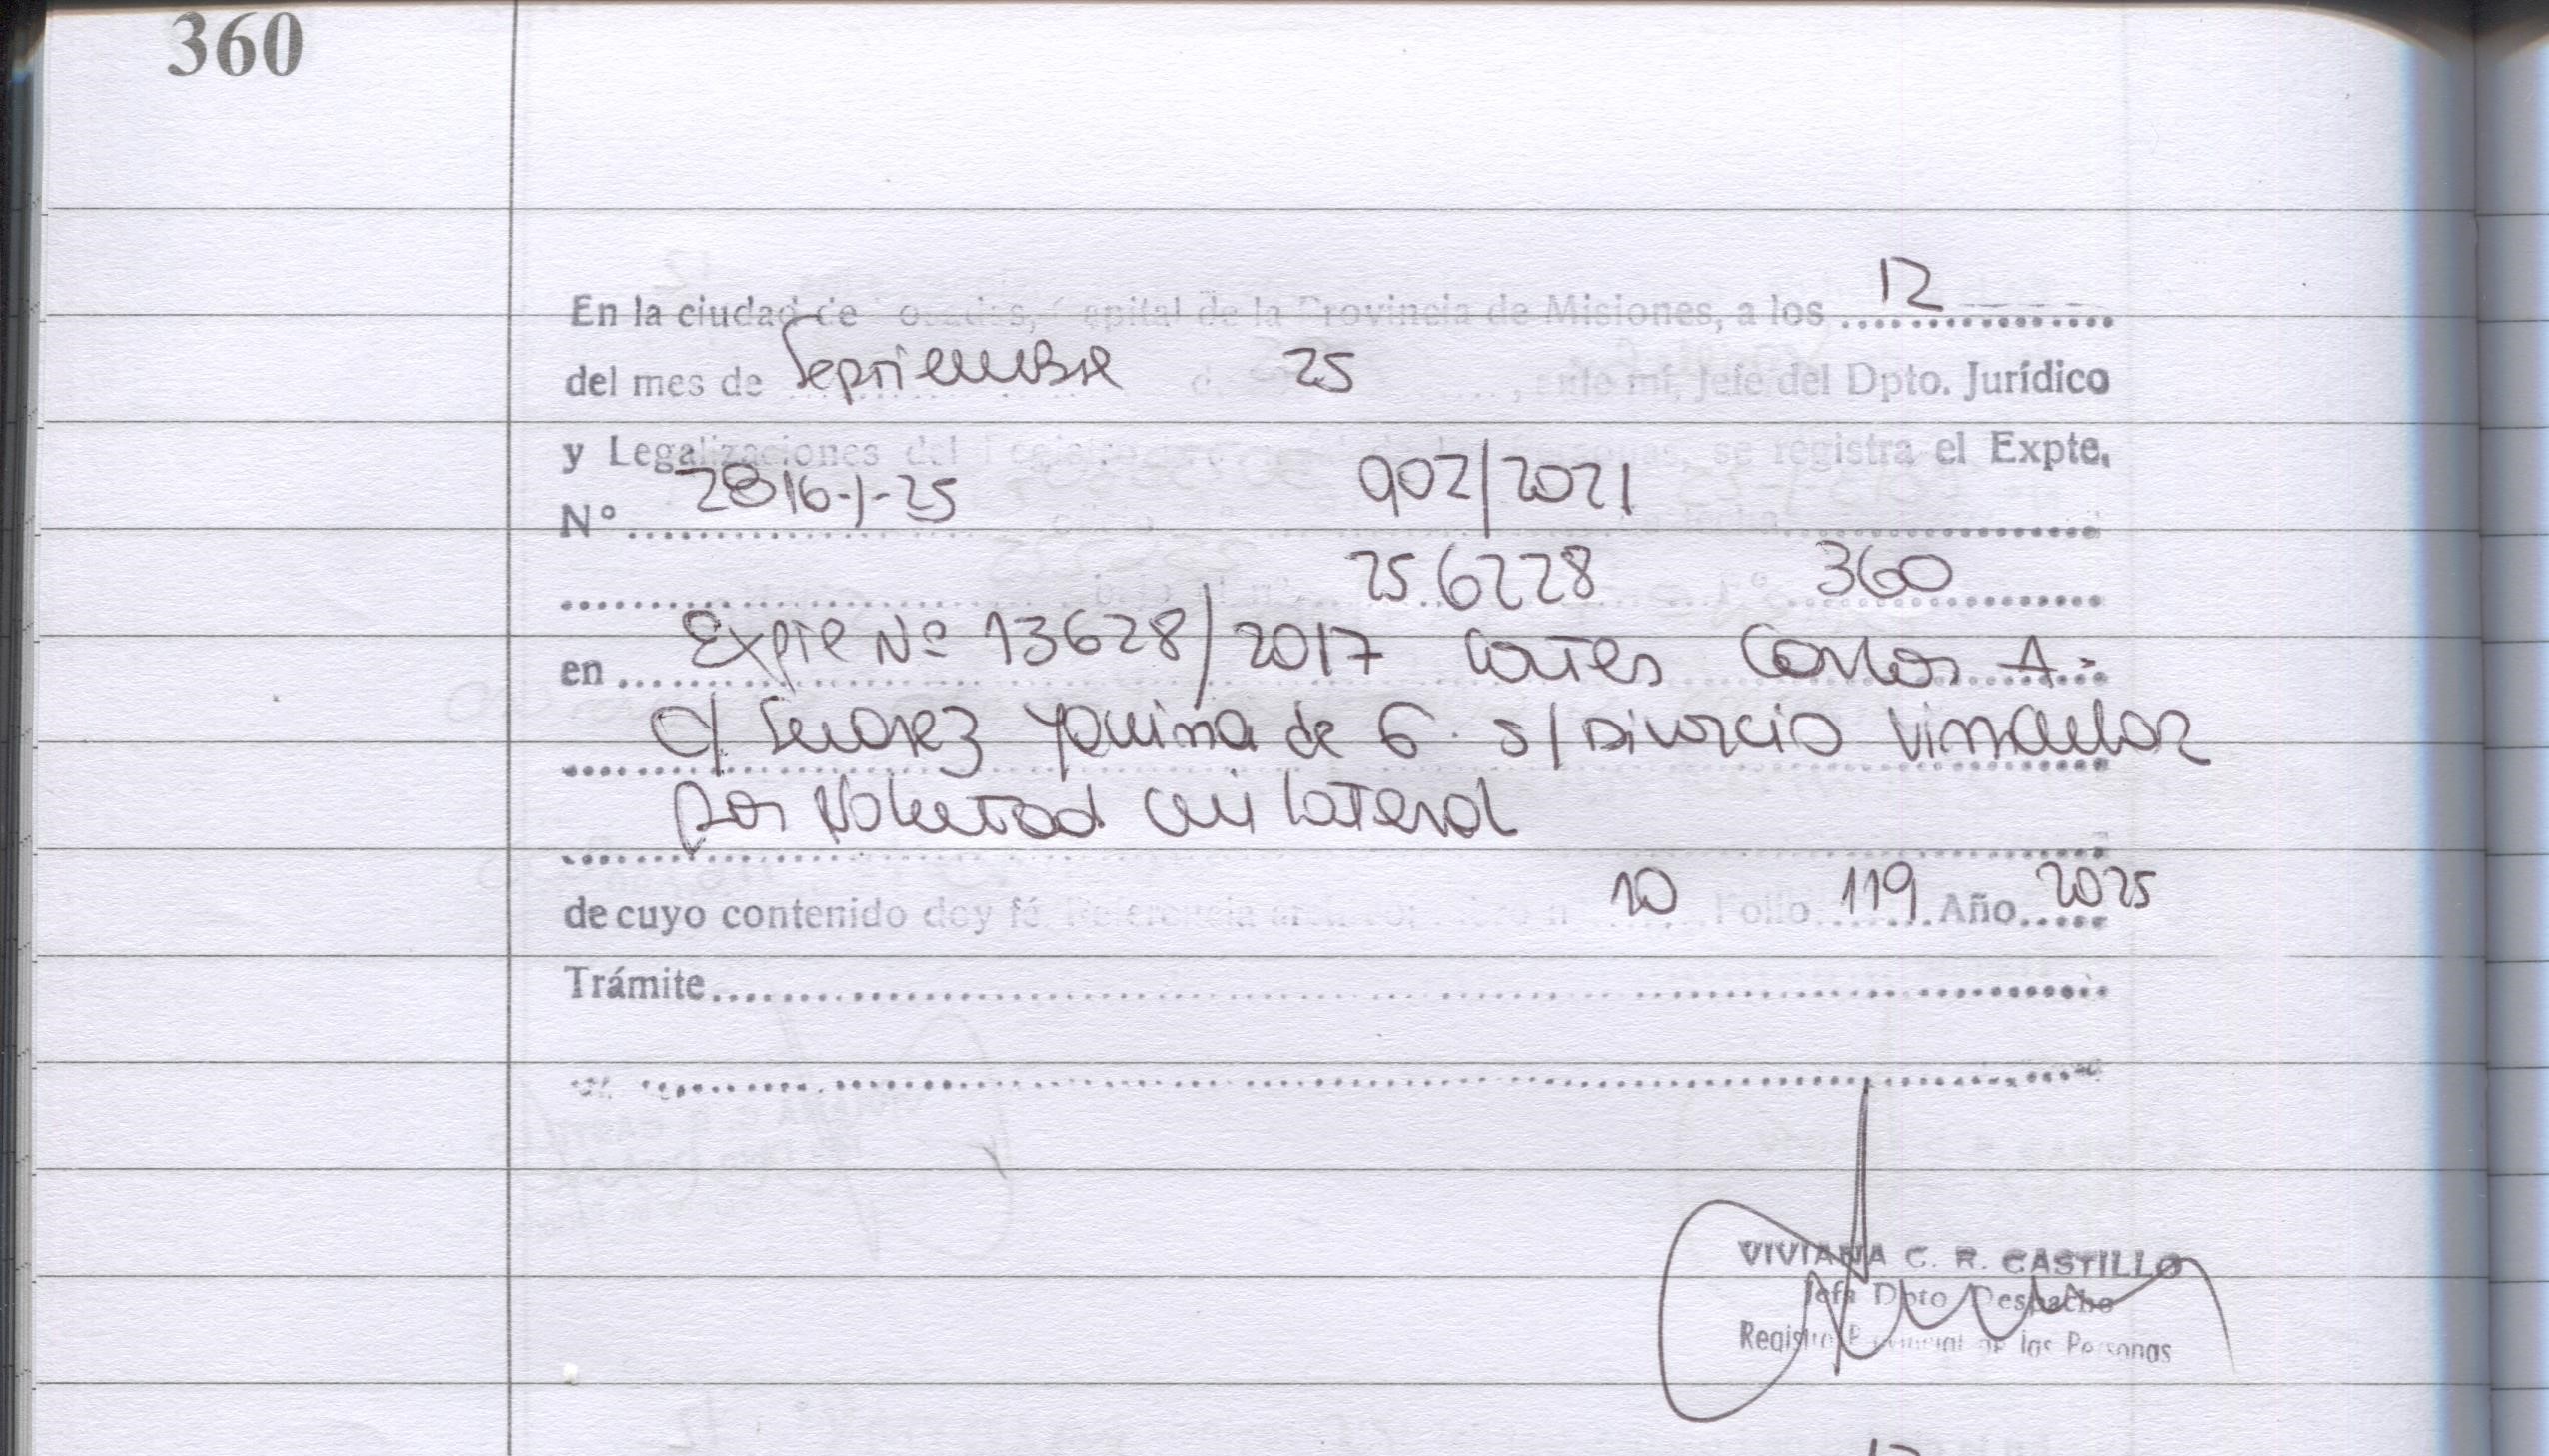 360
12
En la ciudad de Posadas, Capital de la Provincia de Misiones, a los
del mes de Septiembre 25 , ante mi, Jefe del Dpto. Jurídico
y Legalizaciones del se registra el Expte.
Nº 2816-J-25 902/2021
25.6228 360
en Expte Nº 13628/2017 Cortes Carlos A.
c/ Suarez Yanina de G. s/ Divorcio Vincular
por Voluntad unilateral
de cuyo contenido doy fé Referencia 10 Folio 119 Año 2025
Trámite
VIVIANA C. R. CASTILLO
Jefa Dpto Despacho
Registro Provincial de las Personas